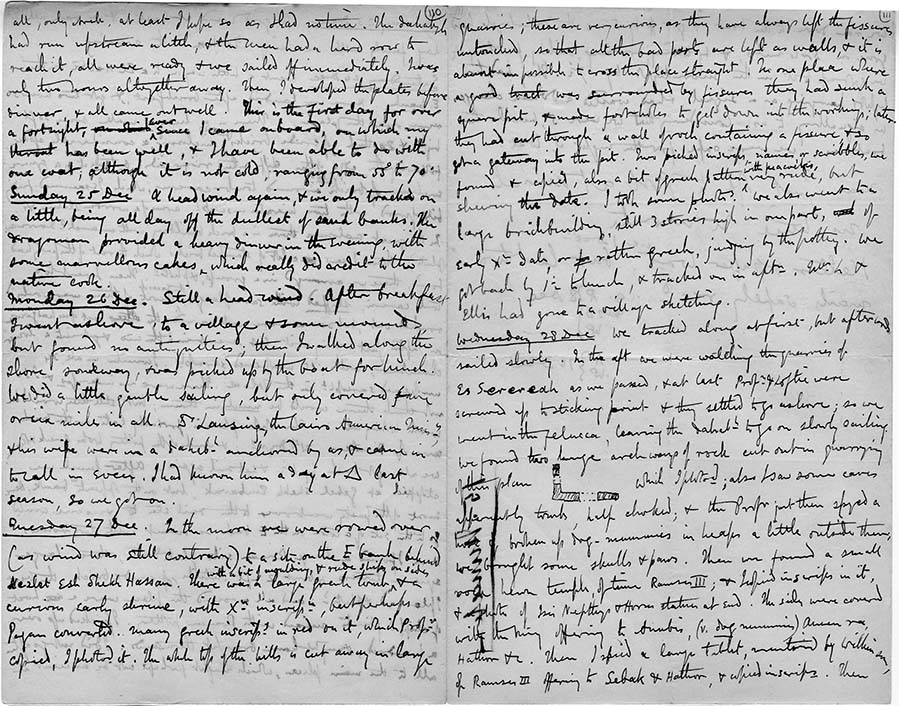 110
all, only stuck, at least I hope so as I had no time. The dahabiyeh
had run upstream a little, & the men had a hard row to
reach it, all were ready & we sailed off immediately. I was
only two hours altogether away. Then I developed the plates before
dinner & all came out well. This is the first day for over
a fortnight, since I came onboard, on which my
throat has been well, & I have been able to do with
one coat, although it is not cold, ranging from 55° to 70°
Sunday 25 Dec A head wind again, & we only tracked on
a little, being all day off the dullest of sand banks. The
dragoman provided a heavy dinner in the evening, with
some marvellous cakes, which really did credit to the
native cook.
Monday 26 Dec. Still a head wind. After breakfast
I went ashore, to a village & some mounds,
but found no antiquities; then I walked along the
shore some way, & was picked up by the boat for lunch.
We did a little gentle sailing, but only covered five
or six miles in all. Dr Lansing, the Cairo American
& his wife were in a dahabh anchored by us, & came in
to call in eveg. I had known him a day at Δ last
season, so we got on.
Tuesday 27 Dec. In the morn we were rowed over
(as wind was still contrary) to a site on the E bank behind
Nezlet Esh Shekh Hassan. There was a large greek tomb, & a
with a bit of moulding, & rude stelæ on sides,
curious early shrine, with Xn inscripn but perhaps
Pagan converted. Many greek inscrips in red on it, which Profr
copied, I photod it. The whole top of the hills is cut away in large
111
quarries; these are very curious, as they have always left the fissures
untouched, so that all the bad parts are left as walls, & it is
almost impossible to cross the place straight. In one place where
a good was surrounded by fissures they had sunk a
square pit, & made footholes to get down into the workings; later
they had cut through a wall of rock containing a fissure & so
got a gateway into the pit. Two picked inscrips, names or scribbles, we
found & copied, also a bit of greek pattern very rude, but
with peacocks,
shewing the date. I took some photos. We also went to a
large brick building, still 3 stories high in one part, of
early Xn date, or rather greek, judging by the pottery. We
got back by 1 to lunch, & tracked on in aftn. Mrs L &
Ellis had gone to a village sketching.
Wednesday 28 Dec we tracked along at first, but afterwards
sailed slowly. In the aft we were watching the quarries of
Es Serereah as we passed, & at last Profr & Loftie were
screwed up to sticking point & they settled to go ashore; so we
went in the felucca, leaving the dahabh to go on slowly sailing
we found two large archways of rock cut out in quarrying
of this plan which I photod; also I saw some caves
apparently tombs, half choked; & the Profr just then spyed a
broken up dog-mummies in heaps a little outside them,
we brought some skulls & paws. Then we found a small
rock hewn temple, of time Ramses III, & copied inscrips in it,
& photo of Isis Nepthys & Horus statues at end. The sides were covered
with the King offering to Anubis, (v. dog mummies) Amen ra,
Hathor &c. Then I spied a large tablet, mentioned by Wilkinson,
of Ramses III offering to Sebak & Hathor, & copied inscrips. Then